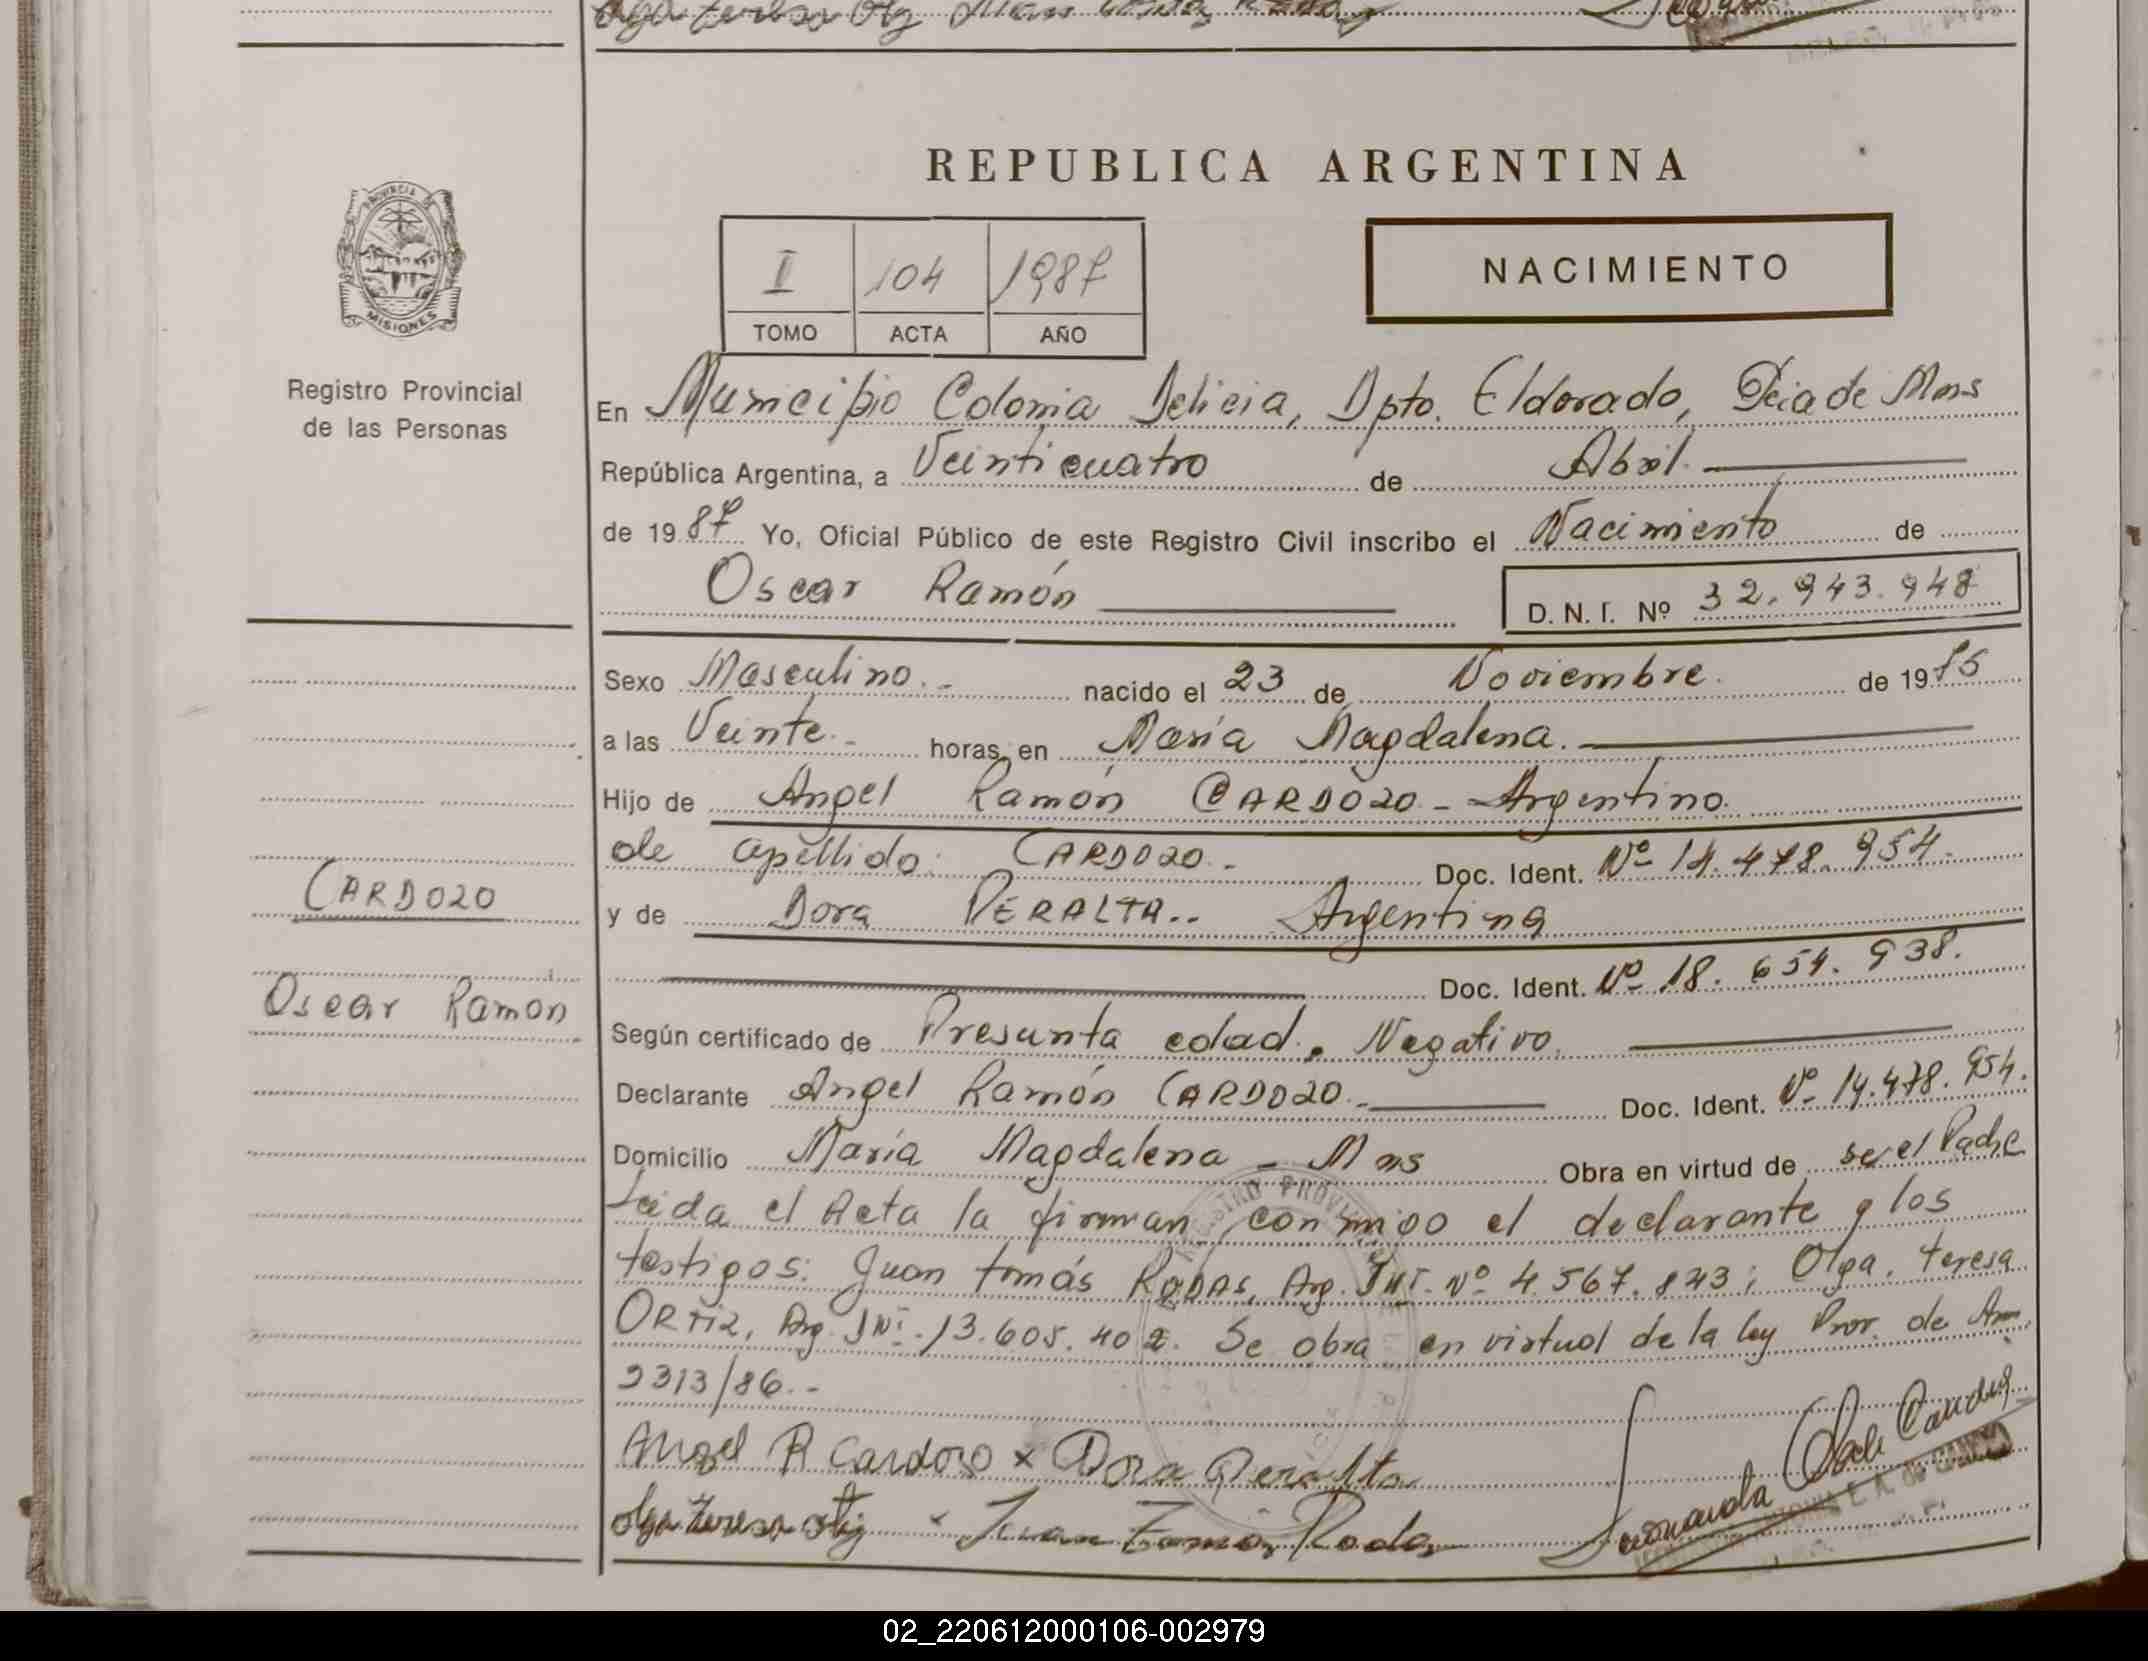 REPUBLICA ARGENTINA
PROVINCIA DE
MISIONES
Registro Provincial
de las Personas
I 104 1987
TOMO ACTA AÑO
NACIMIENTO
En Municipio Colonia Delicia, Dpto. Eldorado, Pcia de Mns
República Argentina, a Veinticuatro de Abril.
de 1987 Yo, Oficial Público de este Registro Civil inscribo el Nacimiento de
Oscar Ramón D. N. I. Nº 32.943.948
Sexo Masculino.- nacido el 23 de Noviembre. de 1975
a las Veinte.- horas, en María Magdalena.
Hijo de Angel Ramón CARDOZO - Argentino.
de apellido: CARDOZO.- Doc. Ident. Nº 14.478.954.
y de Dora PERALTA.. Argentina
Doc. Ident. Nº 18.654.938.
CARDOZO
Oscar Ramon
Según certificado de Presunta edad. Negativo.
Declarante Angel Ramón CARDOZO.- Doc. Ident. Nº 14.478.954.
Domicilio María Magdalena - Mns Obra en virtud de ser el Padre
Leida el Acta la firman conmigo el declarante y los
testigos: Juan tomás RODAS, Arg. DNI. Nº 4.567.843; Olga, teresa
ORTIZ, Arg. DNI. 13.605.402. Se obra en virtud de la ley Pror. de Am.
2313/86.-
Angel R Cardozo x Dora Peralta
olga teresa ortiz x Juan Tomás Rodas
02_220612000106-002979